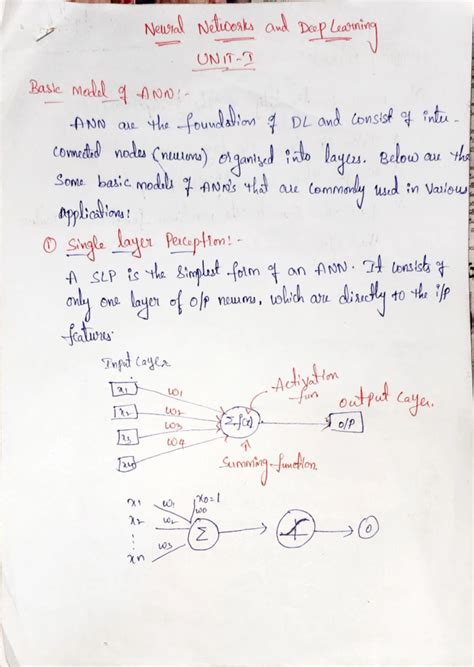 Neural Networks and Deep Learning
UNIT-I
Basic Model of ANN:-
ANN are the foundation of DL and consist of inter-
connected nodes (neurons) organized into layers. Below are the
Some basic models of ANN's that are commonly used in various
Applications:
① Single layer Perception:-
A SLP is the simplest form of an ANN. It consists of
only one layer of O/P neurons, which are directly to the i/p
features.
Input Layer
x1 w1
x2 w2
x3 w3
x4 w4
Σ f(x)
Activation
fun
output Layer.
O/P
Summing function.
x1 w1 x0=1
w0
x2 w2
⋮
xn w3
Σ
O